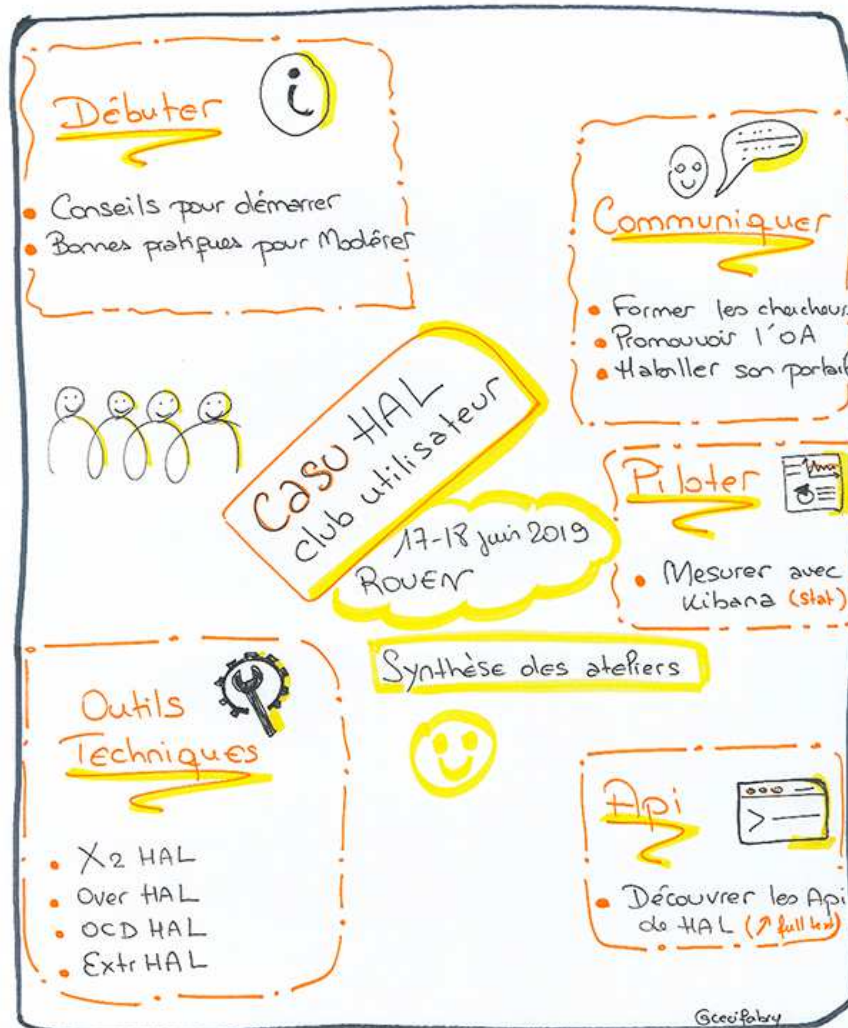 Débuter
• Conseils pour démarrer
• Bonnes pratiques pour Modérer
Communiquer
• Former les chercheurs
• Promouvoir l'OA
• Habiller son portail
Casu HAL
club utilisateur
17-18 juin 2019
ROUEN
Piloter
• Mesurer avec
Kibana (stat)
Synthèse des ateliers
Outils
Techniques
• X2 HAL
• Over HAL
• OCD HAL
• Extr HAL
Api
• Découvrer les Api
de HAL (↗ full text)
@cecifabry